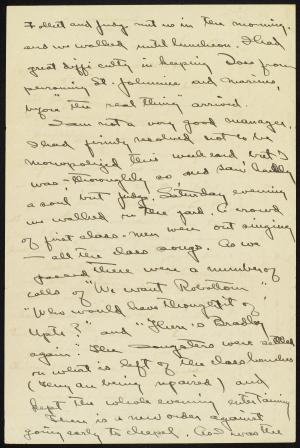 Follett and Judy met us in the morning.
and we walked until luncheon. I had
great difficulty in keeping Does from
perusing St. Johnnies and Marines,
before "the real thing" arrived.
I am not a very good manager,
I had firmly resolved not to be
monopolized this weekend but I
was, thoroughly so and saw hardly
a soul but Judy. Saturday evening
we walked in the yard. A crowd
of first class-men were out singing
- all the class songs. As we
passed there were a number of
calls of "We want Robottom"
"Who would have thought it of
Upte?" and "There's Bradley
again". The songsters were
on what is left of the class benches
(They are being repaired) and
kept the whole evening entertaining
There is a new order against
going early to chapel. And was the